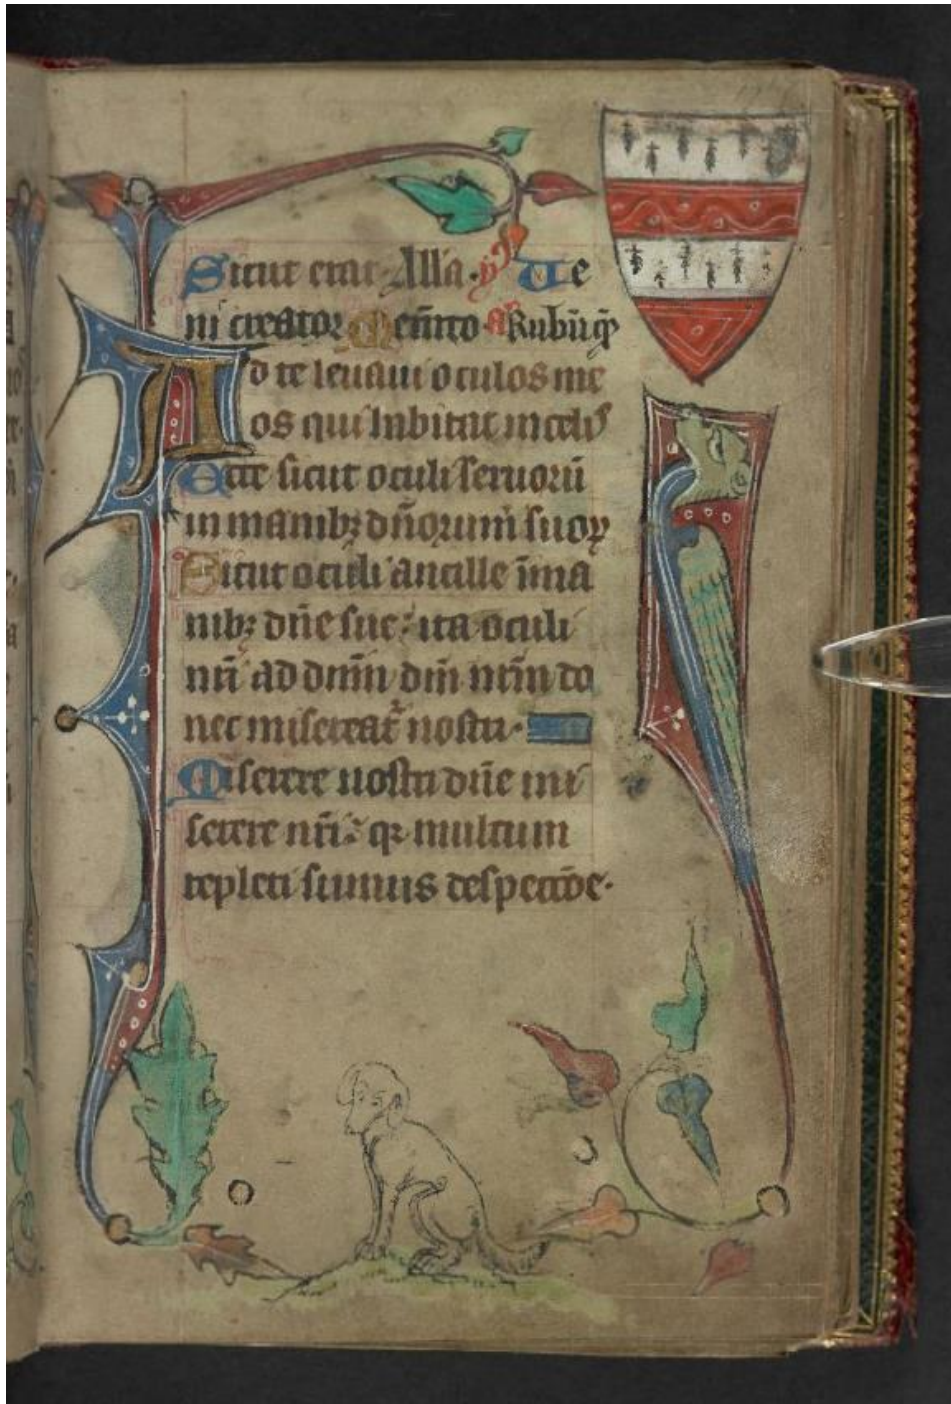 Sicut erat. Alla. ℣ Ue
ni creator Mem̄to añ Rubū q̄
Ad te leuaui oculos me
os qui habitat in celis
Ecce sicut oculi seruorū
in manibꝫ dn̄orum suoꝝ
Sicut oculi ancille ī ma
nibꝫ dn̄e sue: ita oculi
nr̄i ad dnm̄ dm̄ nrm̄ do
nec misereat᷑ nostri.
Miserere nostri dn̄e mi
serere nr̄i: qr multum
repleti sumus despectōe.